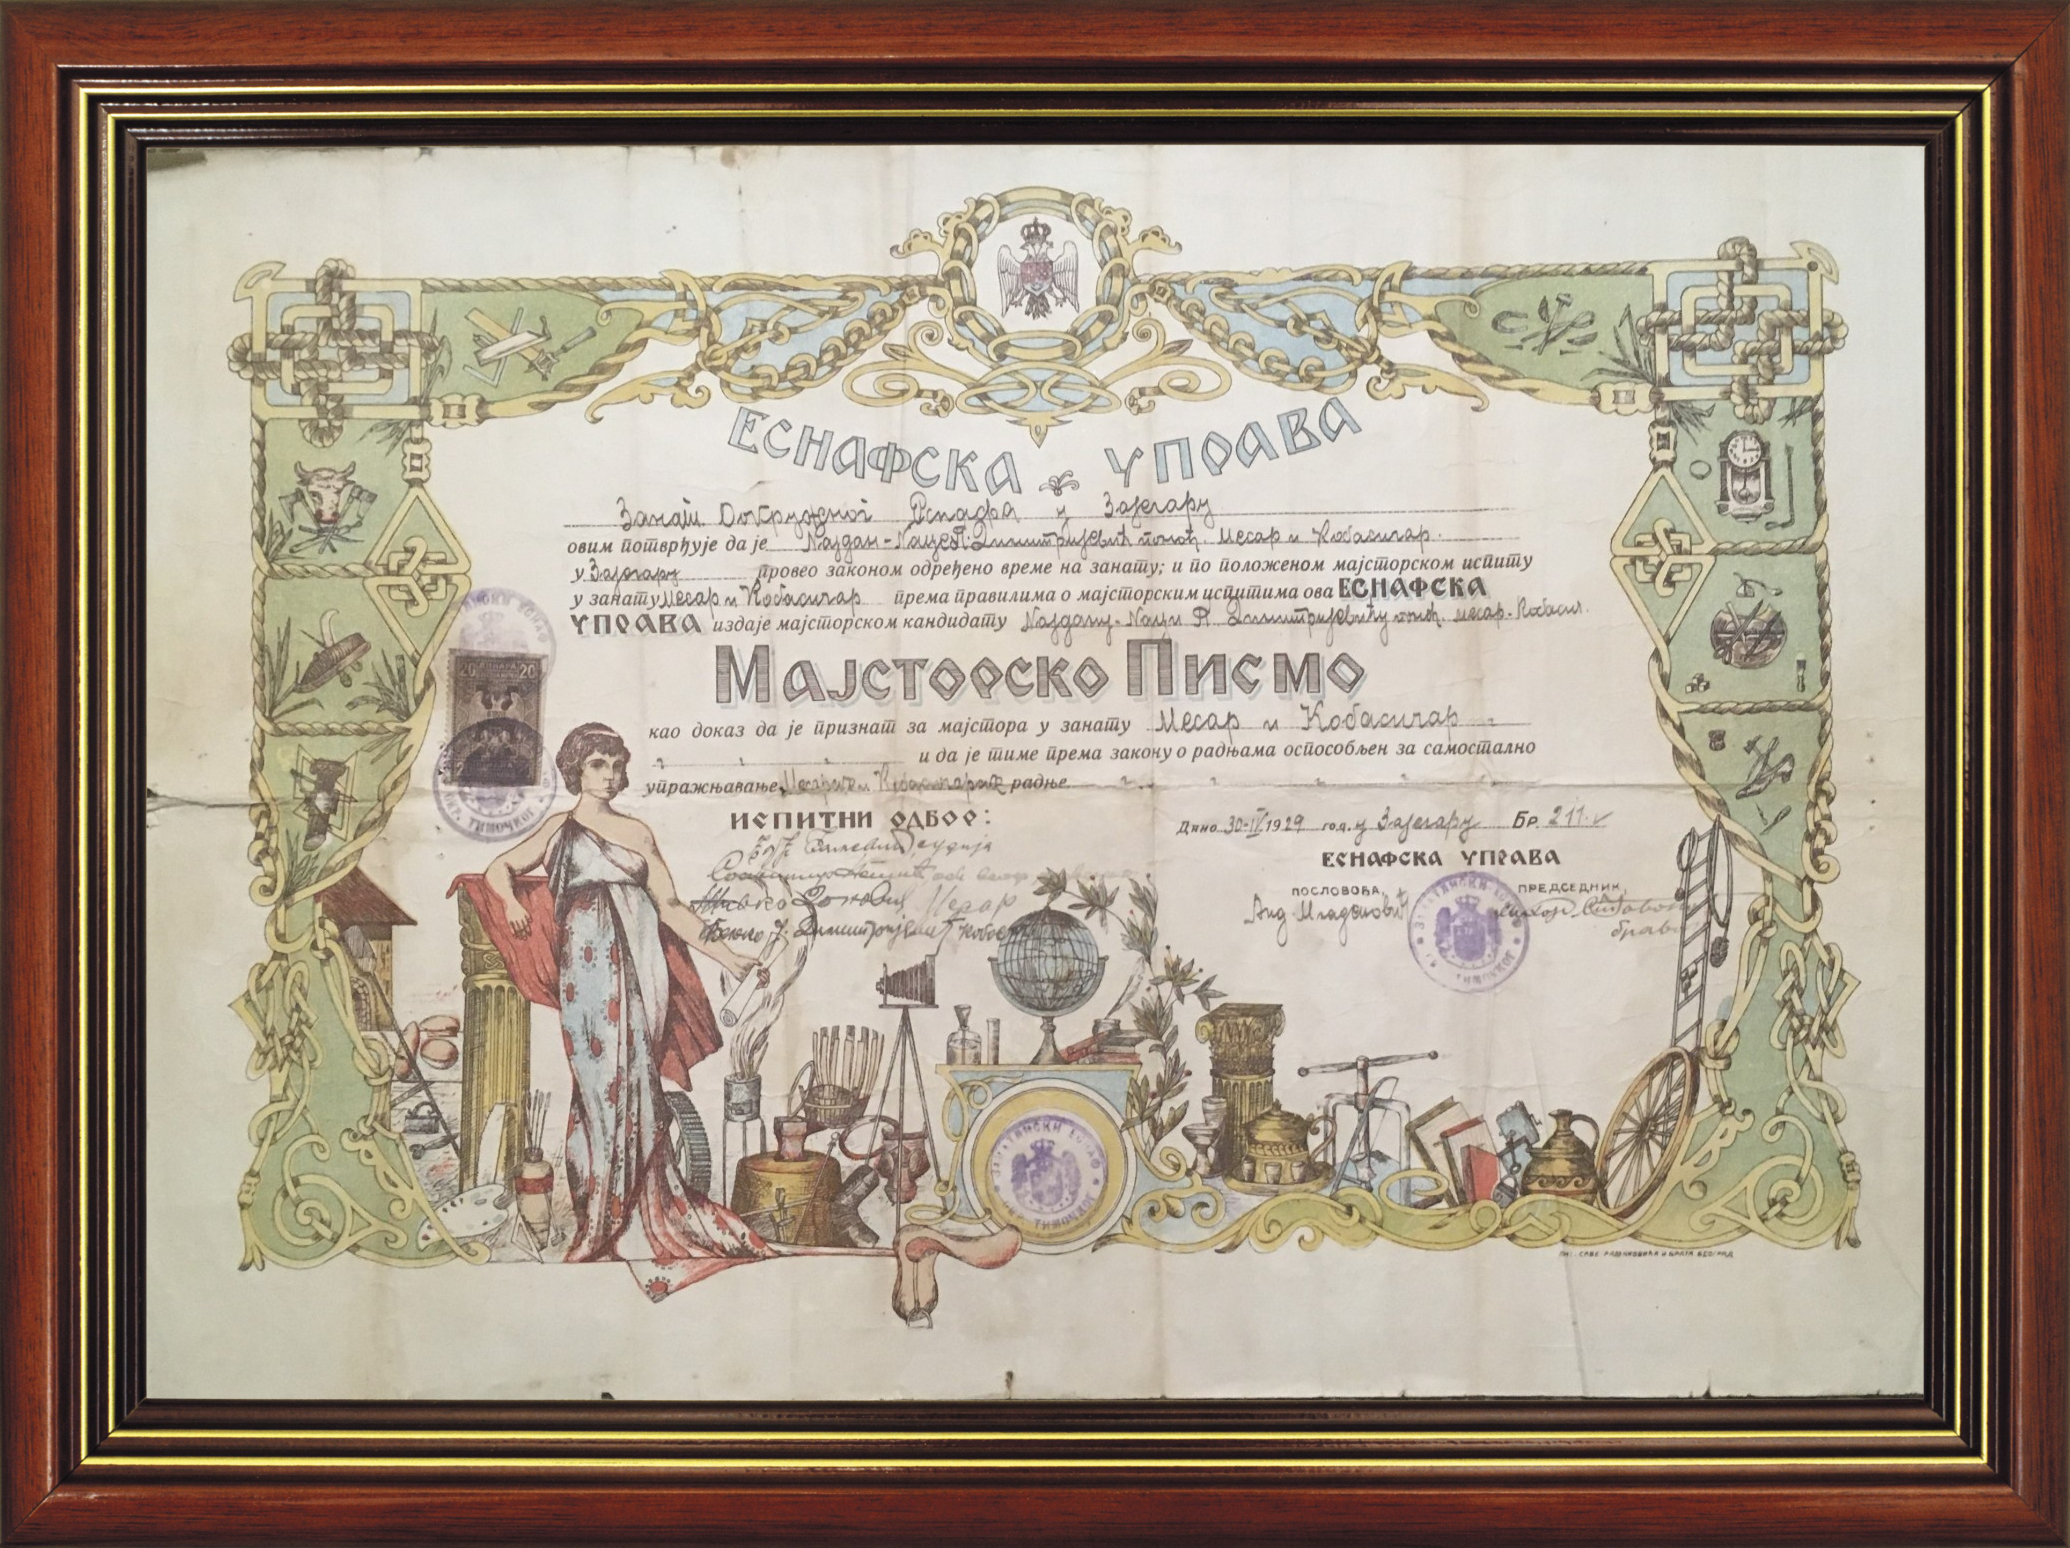 ЕСНАФСКА УПРАВА
Занатл. Окружног Еснафа у Зајечару
овим потврђује да је Најдан-Наце П. Димитријевић Месар и Кобасичар.
у Зајечару провео законом одређено време на занату; и по положеном мајсторском испиту
у занату Месар и Кобасичар према правилима о мајсторским испитима ова ЕСНАФСКА
УПРАВА издаје мајсторском кандидату Најдану-Наци П. Димитријевићу месар-Кобасич.
МАЈСТОРСКО ПИСМО
као доказ да је признат за мајстора у занату Месар и Кобасичар
и да је тиме према закону о радњама оспособљен за самостално
упражњавање радње
20 20
ИСПИТНИ ОДБОР:
судија
Месар
Димитријевић
Дано 30-IV 1929 год. у Зајечару Бр. 211.
ЕСНАФСКА УПРАВА
ПОСЛОВОЂА, ПРЕДСЕДНИК,
Анд Младеновић
ТИМОЧКОГ